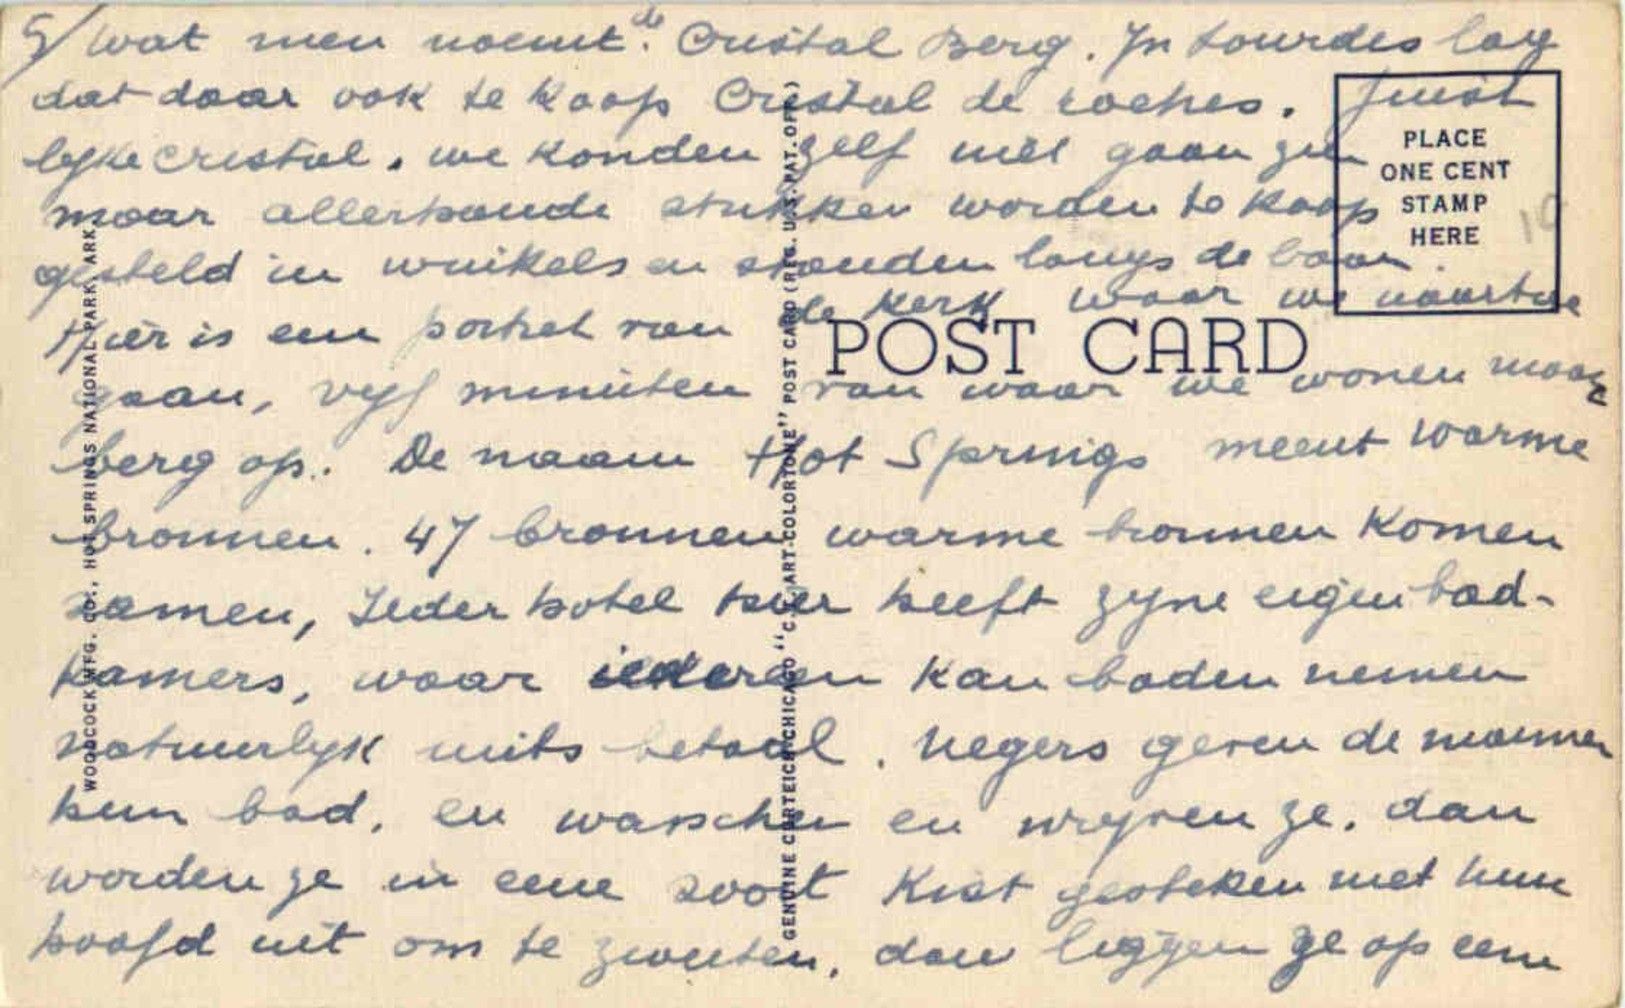 5/ wat men noemt de Cristal Berg. In Lourdes lag
dat daar ook te koop Cristal de roches. Juist
lyke cristal. we konden zelf niet gaan zien
maar allerhande stukken worden te koop
gesteld in winkels en standen langs de baan.
Hier is een portret van de kerk waar we naartoe
gaan, vyf minuten van waar we wonen maar
berg op. De naam Hot Springs meent warme
bronnen. 47 bronnen warme bronnen komen
samen, Ieder hotel hier heeft zyne eigen bad-
kamers, waar iedereen kan baden nemen
natuurlyk mits betaal. Negers geven de mannen
hun bad. en wasschen en wryven ze. dan
worden ze in eene soort Kist gesteken met hun
hoofd uit om te zweeten. dan liggen ze op een
PLACE
ONE CENT
STAMP
HERE
10
POST CARD
WOODCOCK MFG. CO., HOT SPRINGS NATIONAL PARK, ARK.
GENUINE CURTEICH-CHICAGO "C.T. ART-COLORTONE" POST CARD (REG. U.S. PAT. OFF.)